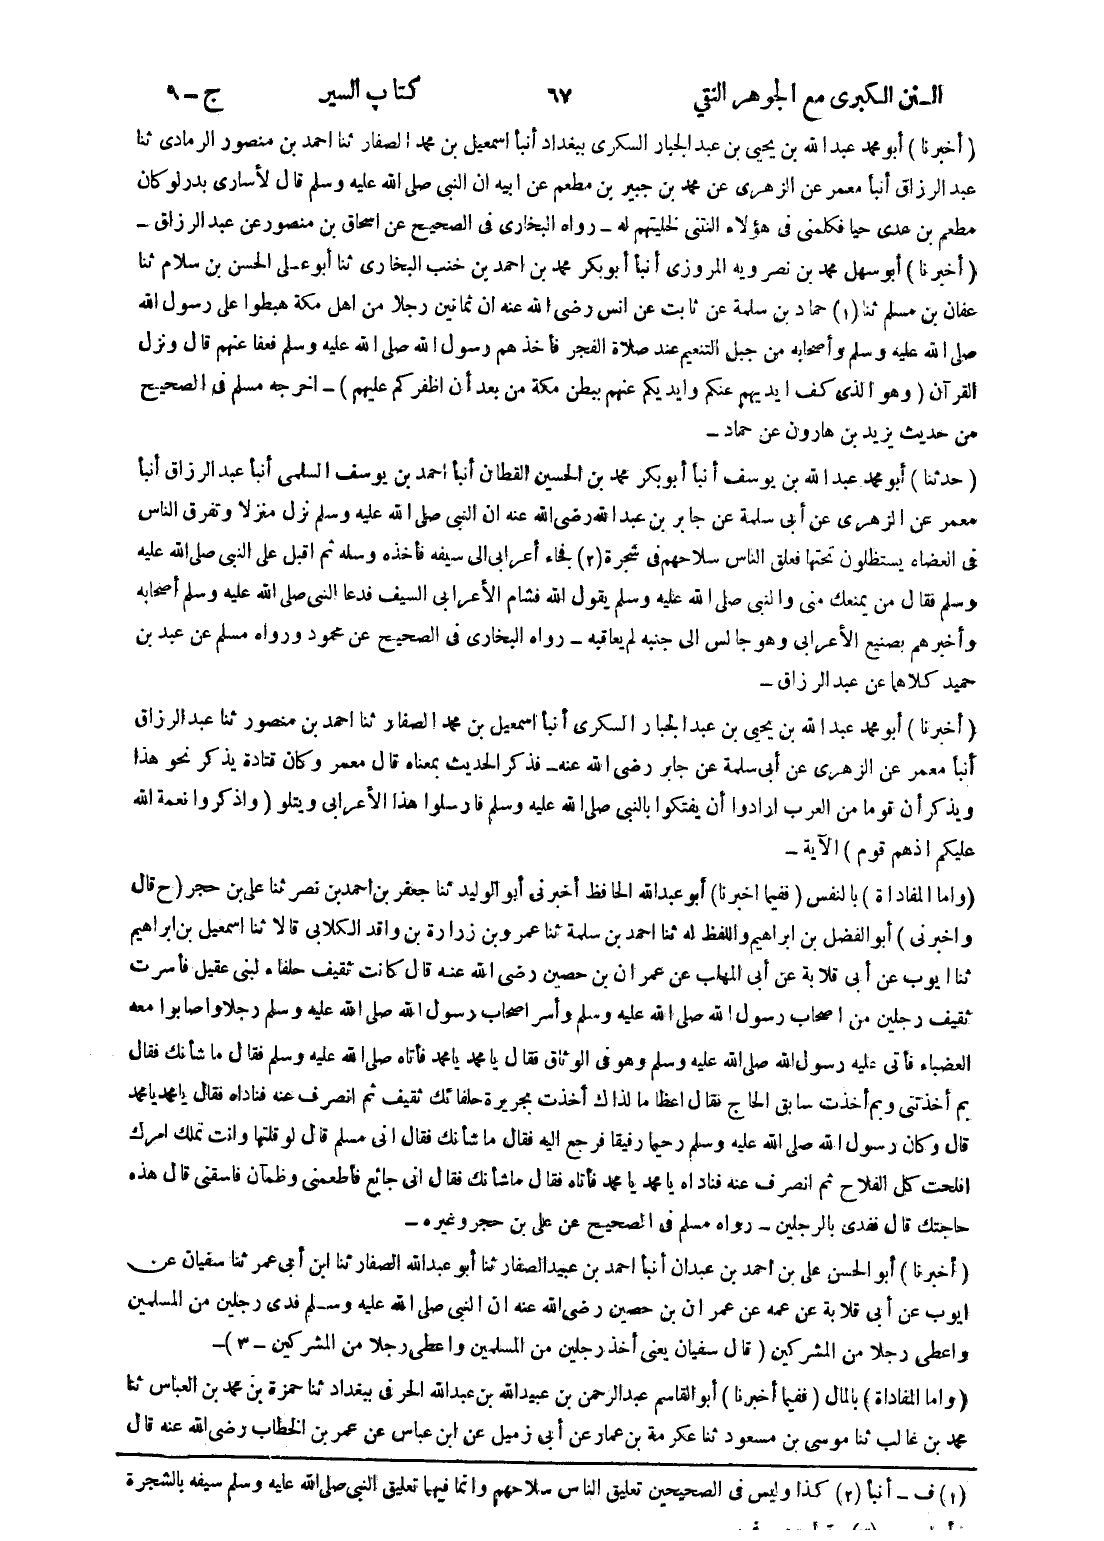 السنن الكبرى مع الجوهر النقي ٦٧ كتاب السير ج - ٩
( أخبرنا ) أبو محمد عبد الله بن يحيى بن عبد الجبار السكرى ببغداد أنبأ اسمعيل بن محمد الصفار ثنا احمد بن منصور الرمادى ثنا
عبد الرزاق أنبأ معمر عن الزهرى عن محمد بن جبير بن مطعم عن ابيه ان النبي صلى الله عليه وسلم قال لأسارى بدر لو كان
مطعم بن عدى حيا فكلمنى فى هؤلاء النتنى لخليتهم له ــ رواه البخارى فى الصحيح عن اسحاق بن منصور عن عبد الرزاق ــ
( أخبرنا ) أبو سهل محمد بن نصرويه المروزى أنبأ أبو بكر محمد بن احمد بن خنب البخارى ثنا أبو على الحسن بن سلام ثنا
عفان بن مسلم ثنا (١) حماد بن سلمة عن ثابت عن انس رضى الله عنه ان ثمانين رجلا من اهل مكة هبطوا على رسول الله
صلى الله عليه وسلم وأصحابه من جبل التنعيم عند صلاة الفجر فأخذهم رسول الله صلى الله عليه وسلم فعفا عنهم قال ونزل
القرآن ( وهو الذى كف ايديهم عنكم وايديكم عنهم ببطن مكة من بعد أن اظفركم عليهم ) ــ اخرجه مسلم فى الصحيح
من حديث يزيد بن هارون عن حماد ــ
( حدثنا ) أبو محمد عبد الله بن يوسف أنبأ أبو بكر محمد بن الحسين القطان أنبأ احمد بن يوسف السلمى أنبأ عبد الرزاق أنبأ
معمر عن الزهرى عن أبى سلمة عن جابر بن عبد الله رضى الله عنه ان النبى صلى الله عليه وسلم نزل منزلا وتفرق الناس
فى العضاه يستظلون تحتها فعلق الناس سلاحهم فى شجرة (٢) فجاء أعرابى الى سيفه فأخذه وسله ثم اقبل على النبى صلى الله عليه
وسلم فقال من يمنعك منى والنبى صلى الله عليه وسلم يقول الله فشام الأعرابى السيف فدعا النبى صلى الله عليه وسلم أصحابه
وأخبرهم بصنيع الأعرابى وهو جالس الى جنبه لم يعاقبه ــ رواه البخارى فى الصحيح عن محمود ورواه مسلم عن عبد بن
حميد كلاهما عن عبد الرزاق ــ
( أخبرنا ) أبو محمد عبد الله بن يحيى بن عبد الجبار السكرى أنبأ اسمعيل بن محمد الصفار ثنا احمد بن منصور ثنا عبد الرزاق
أنبأ معمر عن الزهرى عن أبى سلمة عن جابر رضى الله عنه ــ فذكر الحديث بمعناه قال معمر وكان قتادة يذكر نحو هذا
ويذكر أن قوما من العرب ارادوا أن يفتكوا بالنبى صلى الله عليه وسلم فارسلوا هذا الأعرابى ويتلو ( واذكروا نعمة الله
عليكم اذهم قوم ) الآية ــ
(واما المفاداة ) بالنفس ( ففيما اخبرنا) أبو عبد الله الحافظ أخبرنى أبو الوليد ثنا جعفر بن احمد بن نصر ثنا على بن حجر (ح قال
واخبرنى ) أبو الفضل بن ابراهيم واللفظ له ثنا احمد بن سلمة ثنا عمرو بن زرارة بن واقد الكلابى قالا ثنا اسمعيل بن ابراهيم
ثنا ايوب عن أبى قلابة عن أبى المهلب عن عمران بن حصين رضى الله عنه قال كانت ثقيف حلفاء لبنى عقيل فأسرت
ثقيف رجلين من اصحاب رسول الله صلى الله عليه وسلم وأسر اصحاب رسول الله صلى الله عليه وسلم رجلا واصابوا معه
العضباء فأتى عليه رسول الله صلى الله عليه وسلم وهو فى الوثاق فقال يا محمد يا محمد فأتاه صلى الله عليه وسلم فقال ما شأنك فقال
بم أخذتنى وبم أخذت سابق الحاج فقال اعظا ما لذاك أخذت بجريرة حلفائك ثقيف ثم انصرف عنه فناداه فقال يا محمد يا محمد
قال وكان رسول الله صلى الله عليه وسلم رحيما رفيقا فرجع اليه فقال ما شأنك فقال انى مسلم قال لو قلتها وانت تملك امرك
افلحت كل الفلاح ثم انصرف عنه فناداه يا محمد يا محمد فأتاه فقال ما شأنك فقال انى جائع فأطعمنى وظمآن فاسقنى قال هذه
حاجتك قال ففدى بالرجلين ــ رواه مسلم فى الصحيح عن على بن حجر وغيره ــ
( أخبرنا ) أبو الحسن على بن احمد بن عبدان أنبأ احمد بن عبيد الصفار ثنا أبو عبد الله الصفار ثنا ابن أبى عمر ثنا سفيان عن
ايوب عن أبى قلابة عن عمه عن عمران بن حصين رضى الله عنه ان النبى صلى الله عليه وسلم فدى رجلين من المسلمين
واعطى رجلا من المشركين ( قال سفيان يعنى أخذ رجلين من المسلمين واعطى رجلا من المشركين ــ ٣ ) ــ
( واما المفاداة ) بالمال ( ففيما أخبرنا ) أبو القاسم عبد الرحمن بن عبيد الله بن عبد الله الحرفى ببغداد ثنا حمزة بن محمد بن العباس ثنا
محمد بن غالب ثنا موسى بن مسعود ثنا عكرمة بن عمار عن أبى زميل عن ابن عباس عن عمر بن الخطاب رضى الله عنه قال
(١) ف ــ أنبأ (٢) كذا وليس فى الصحيحين تعليق الناس سلاحهم وانما فيهما تعليق النبى صلى الله عليه وسلم سيفه بالشجرة